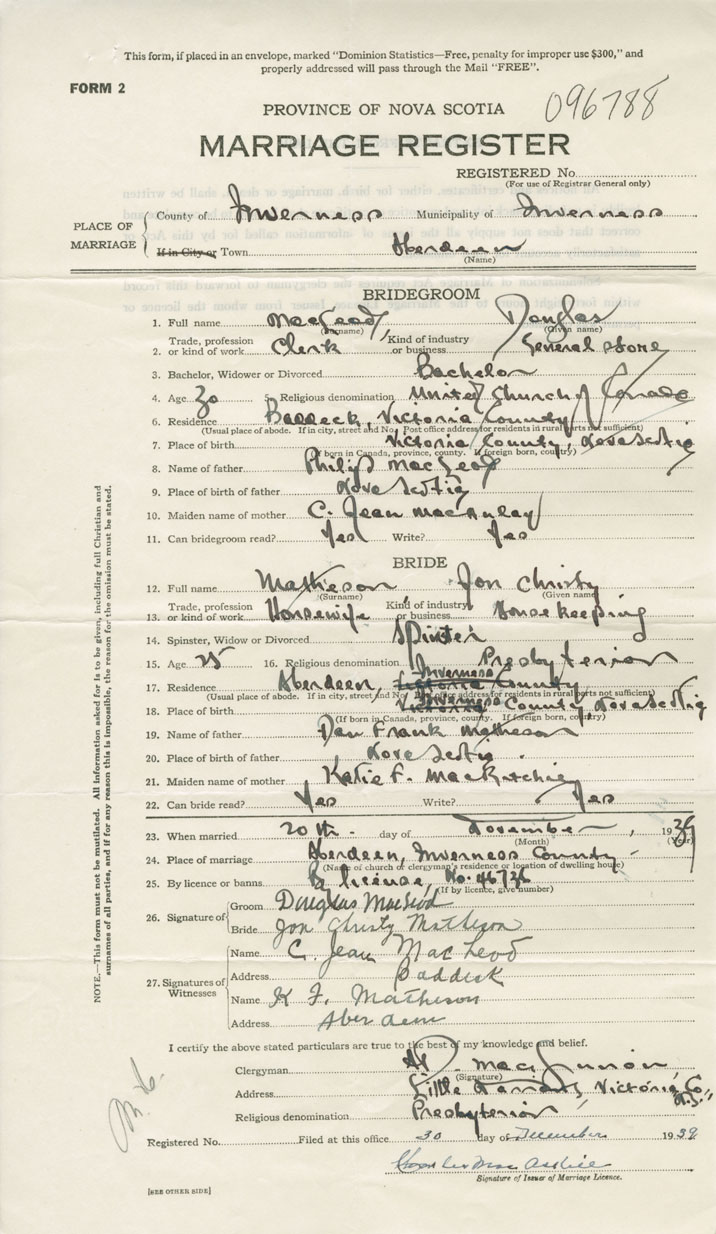 This form, if placed in an envelope, marked "Dominion Statistics—Free, penalty for improper use $300," and
properly addressed will pass through the Mail "FREE".
FORM 2
096788
PROVINCE OF NOVA SCOTIA
MARRIAGE REGISTER
REGISTERED No.
(For use of Registrar General only)
PLACE OF MARRIAGE
County of Inverness Municipality of Inverness
If in City or Town Aberdeen
(Name)
BRIDEGROOM
1. Full name MacLeod, Douglas
(Surname) (Given name)
2. Trade, profession or kind of work Clerk Kind of industry or business General Store
3. Bachelor, Widower or Divorced Bachelor
4. Age 30 5. Religious denomination United Church of Canada
6. Residence Baddeck, Victoria County
(Usual place of abode. If in city, street and No. Post office address for residents in rural parts not sufficient)
7. Place of birth Victoria County, Nova Scotia
(If born in Canada, province, county. If foreign born, country)
8. Name of father Philip MacLeod
9. Place of birth of father Nova Scotia
10. Maiden name of mother C. Jean MacAulay
11. Can bridegroom read? Yes Write? Yes
BRIDE
12. Full name Matheson Jon Christy
(Surname) (Given name)
13. Trade, profession or kind of work Housewife Kind of industry or business Housekeeping
14. Spinster, Widow or Divorced Spinster
15. Age 25 16. Religious denomination Presbyterian
17. Residence Aberdeen, Victoria Inverness County
(Usual place of abode. If in city, street and No. Post office address for residents in rural parts not sufficient)
18. Place of birth Victoria Inverness County Nova Scotia
(If born in Canada, province, county. If foreign born, country)
19. Name of father Dan Frank Matheson
20. Place of birth of father Nova Scotia.
21. Maiden name of mother Katie F. MacRitchie
22. Can bride read? Yes Write? Yes
23. When married 20th. day of November, 1939
(Month) (Year)
24. Place of marriage Aberdeen, Inverness County
(Name of church or clergyman's residence or location of dwelling house)
25. By licence or banns By license, No. 46736
(If by licence, give number)
26. Signature of
Groom Douglas MacLeod
Bride Jon Christy Matheson
27. Signatures of Witnesses
Name C. Jean MacLeod
Address Baddeck
Name K F. Matheson
Address Aberdeen
I certify the above stated particulars are true to the best of my knowledge and belief.
Clergyman MacKinnon
(Signature)
Address Little Narrows, Victoria Co. N.S.
Religious denomination Presbyterian
Registered No. Filed at this office 30 day of December 1939
Signature of Issuer of Marriage Licence.
[SEE OTHER SIDE]
NOTE.—This form must not be mutilated. All Information asked for is to be given, including full Christian and
surnames of all parties, and if for any reason this is impossible, the reason for the omission must be stated.